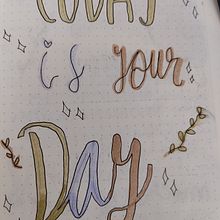 TODAY
is your
Day